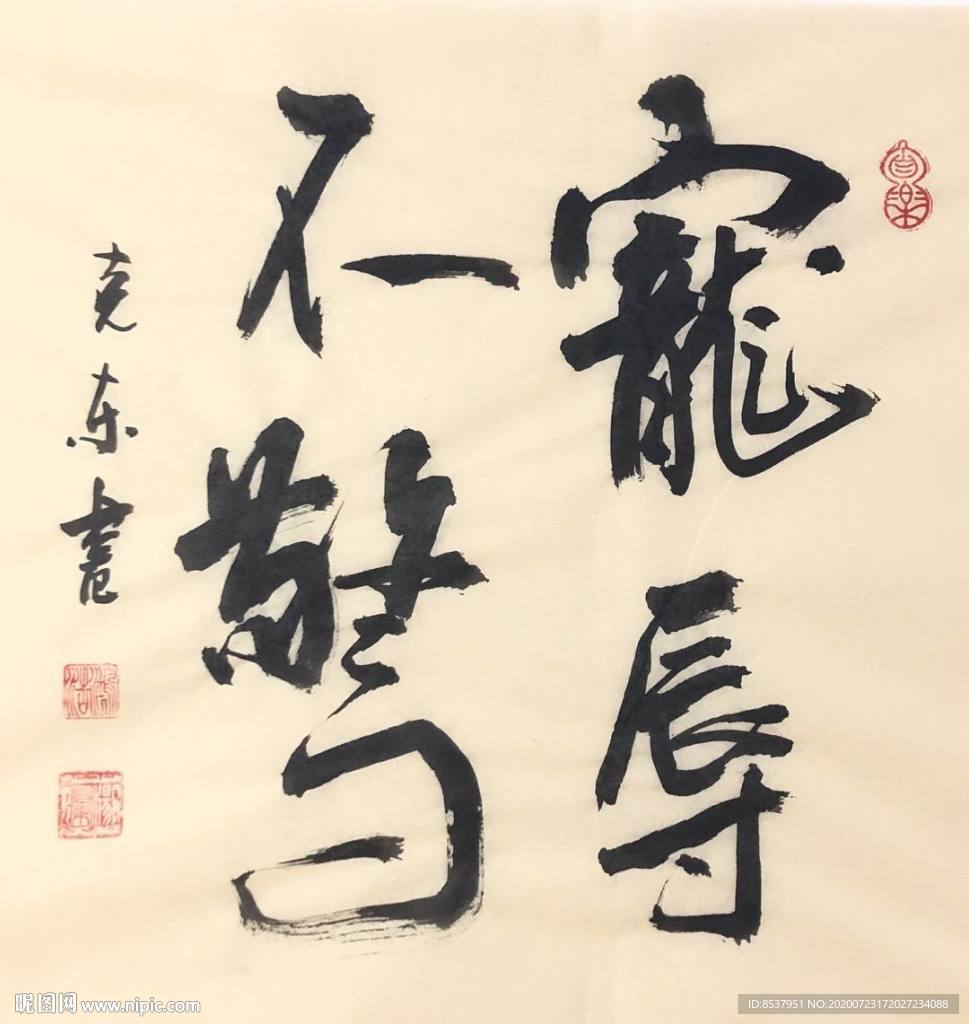 寵辱
不驚
克东書
昵图网 www.nipic.com
ID:8537951 NO:20200723172027234088